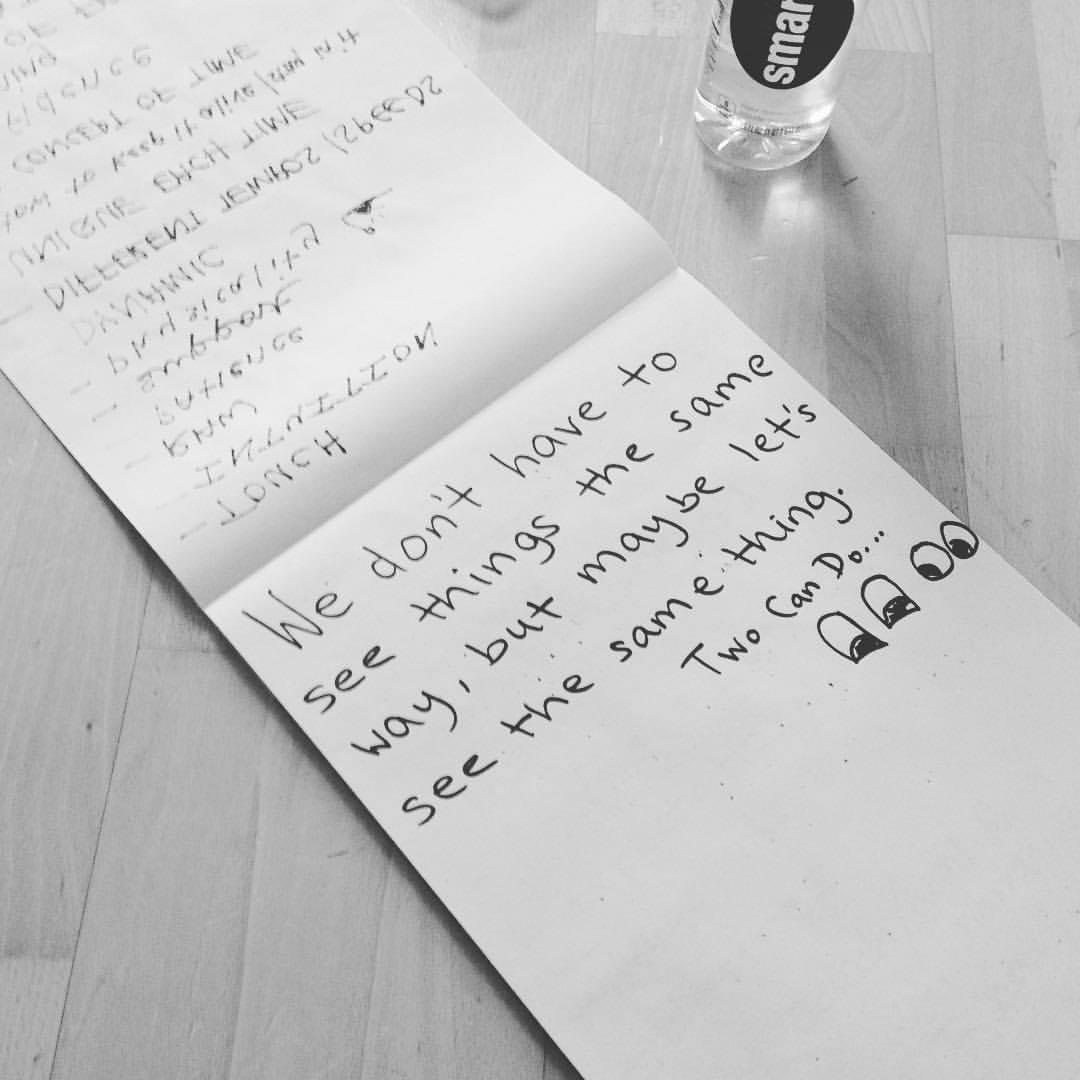 We don't have to
see things the same
way, but maybe let's
see the same thing.
Two Can Do...
TOUCH
INTUITION
RAW
PATIENCE
support
physicality
DYNAMIC
DIFFERENT TEMPOS/SPEEDS
UNIQUE EACH TIME
way to keep it alive/
CONCEPT OF TIME
smar